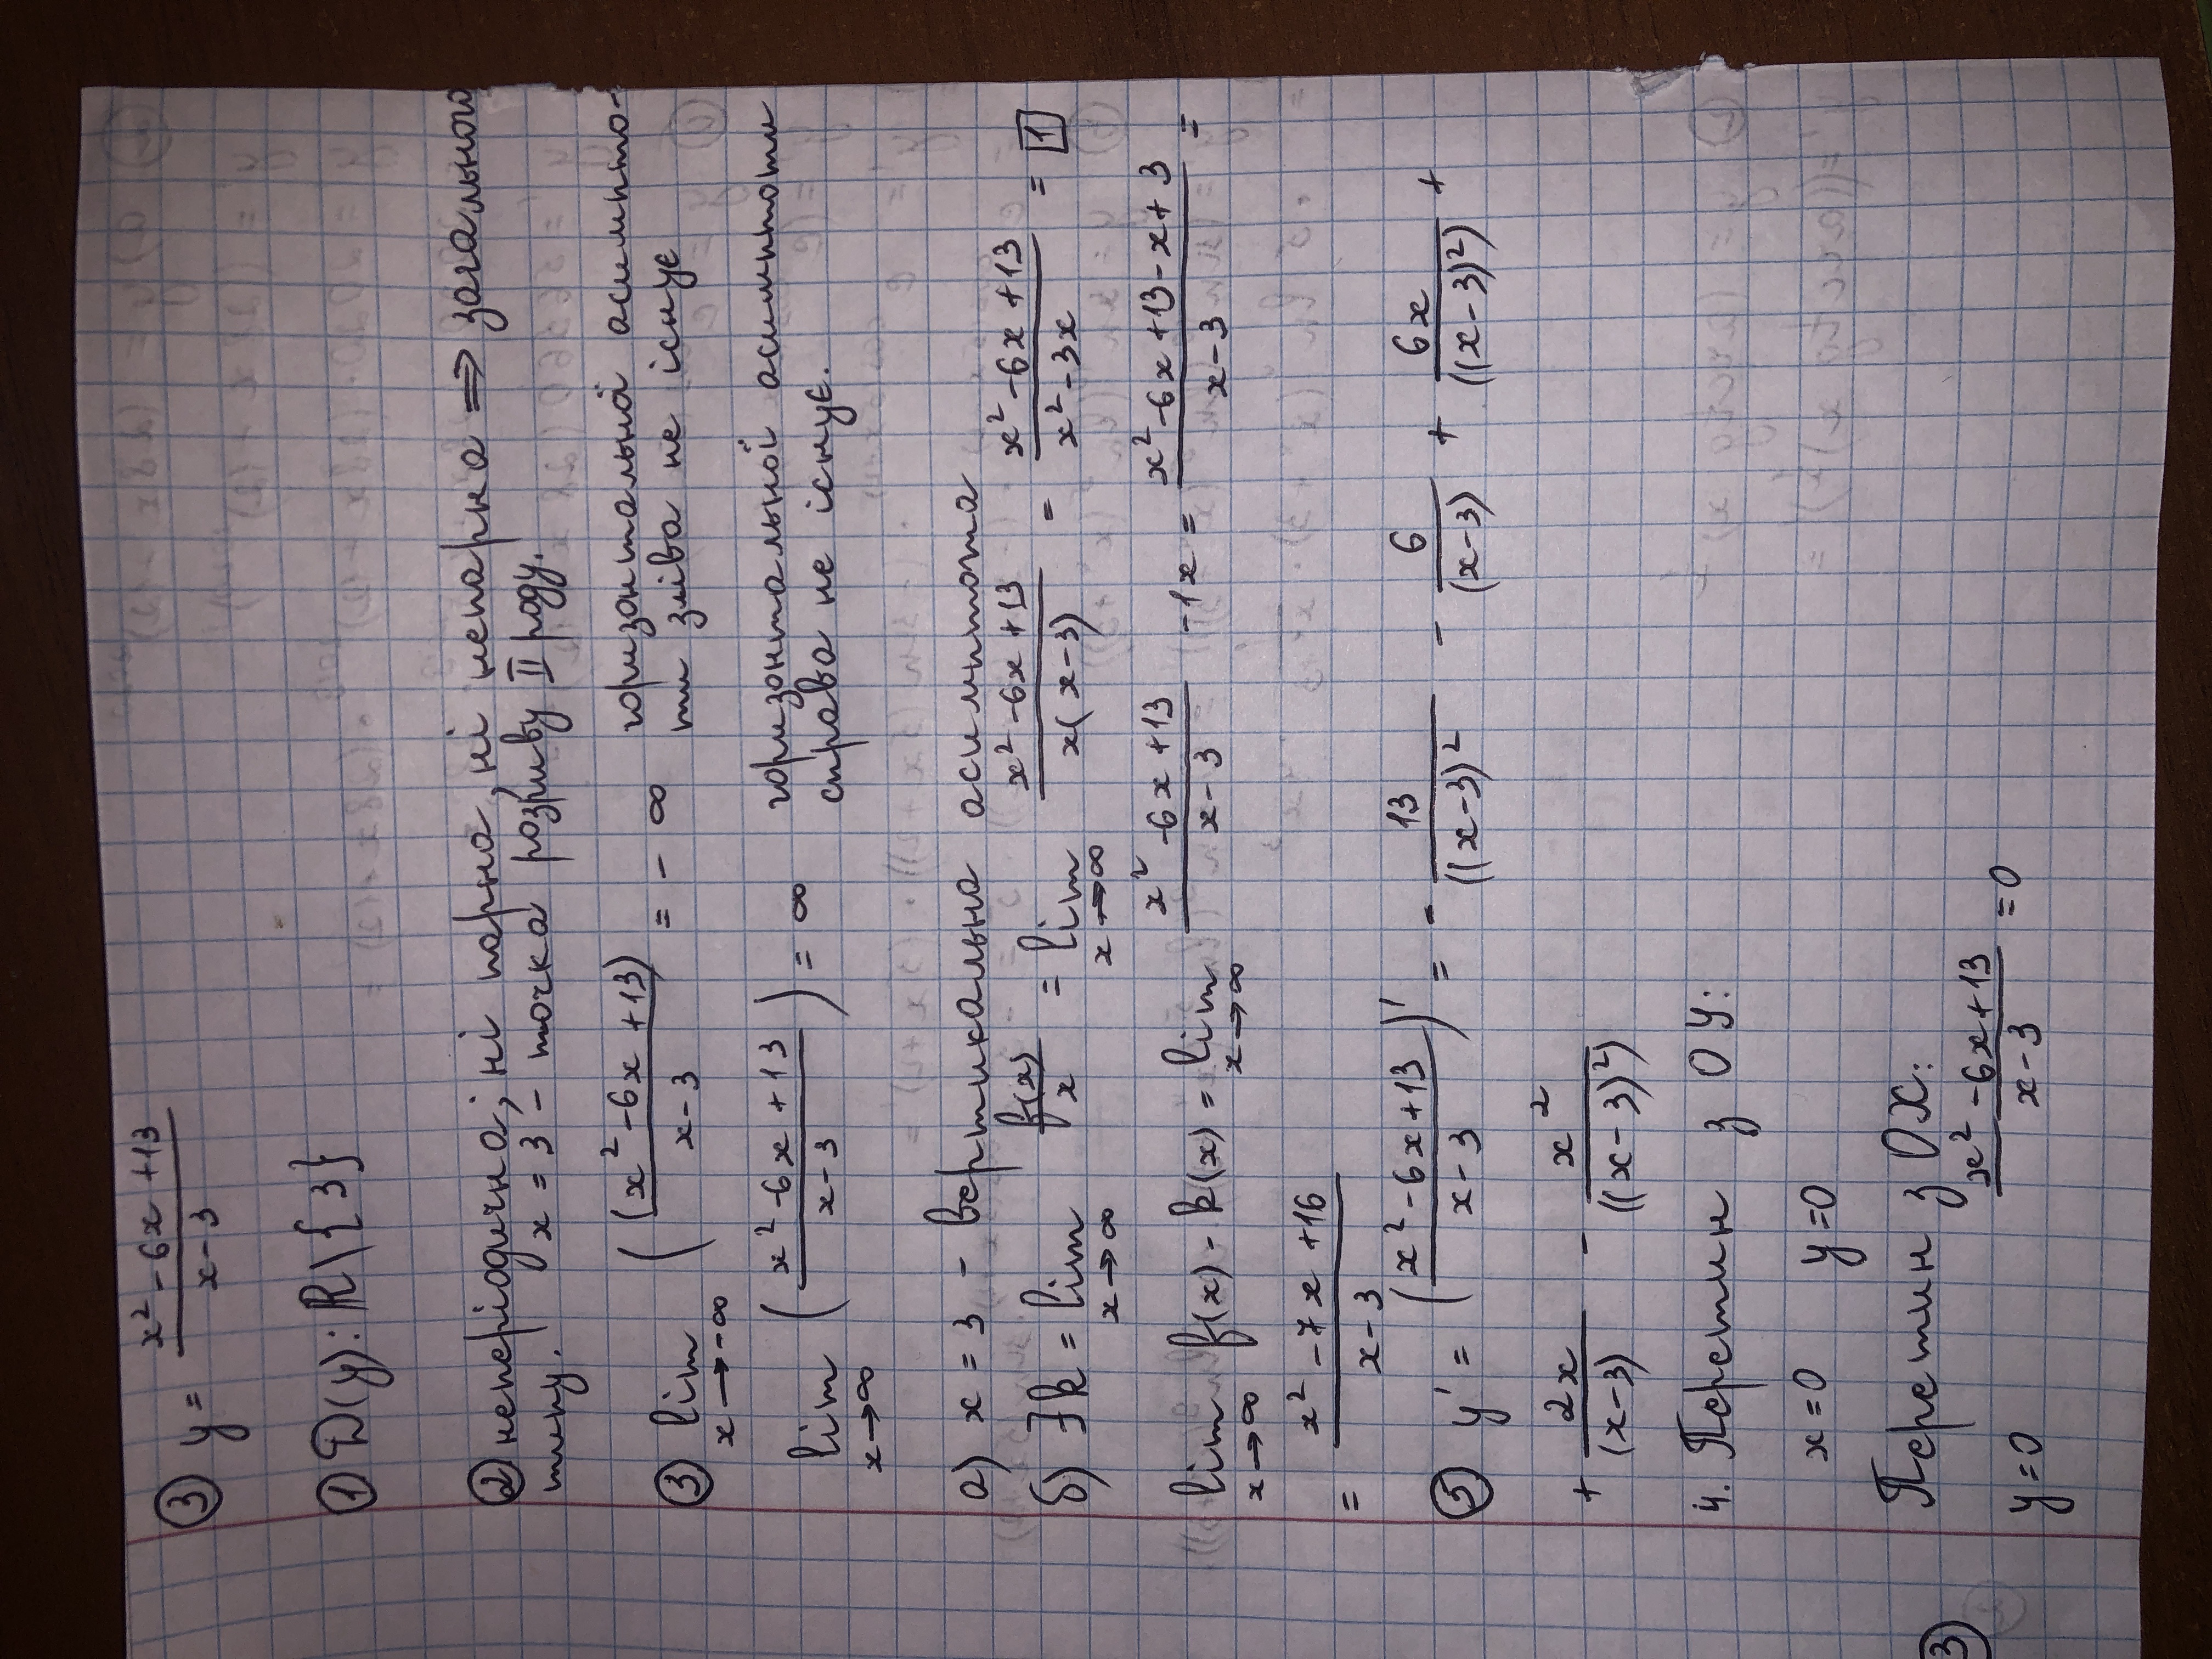 ③ y = (x² - 6x + 13)/(x - 3)
① D(y): ℝ\{3}
② неперіодична; ні парна, ні непарна ⇒ загального
типу. x = 3 - точка розриву II роду.
③ lim x→-∞ ((x² - 6x + 13)/(x - 3) = -∞ горизонтальної асимпто-
ти зліва не існує
lim x→∞ ((x² - 6x + 13)/(x - 3)) = ∞ горизонтальної асимптоти
справа не існує.
а) x = 3 - вертикальна асимптота
б) ∃k = lim x→∞ f(x)/x = lim x→∞ (x² - 6x + 13)/(x(x - 3)) = (x² - 6x + 13)/(x² - 3x) = 1
lim x→∞ f(x) - k(x) = lim x→∞ (x² - 6x + 13)/(x - 3) - 1x = (x² - 6x + 13 - x + 3)/(x - 3) =
= (x² - 7x + 16)/(x - 3)
⑤ y' = ((x² - 6x + 13)/(x - 3))' = - 13/((x - 3)² - 6/(x - 3) + 6x/((x - 3)²) +
+ 2x/(x - 3) - x²/((x - 3)²)
4. Перетин з OY:
x = 0 y = 0
Перетин з OX:
y = 0 (x² - 6x + 13)/(x - 3) = 0
3